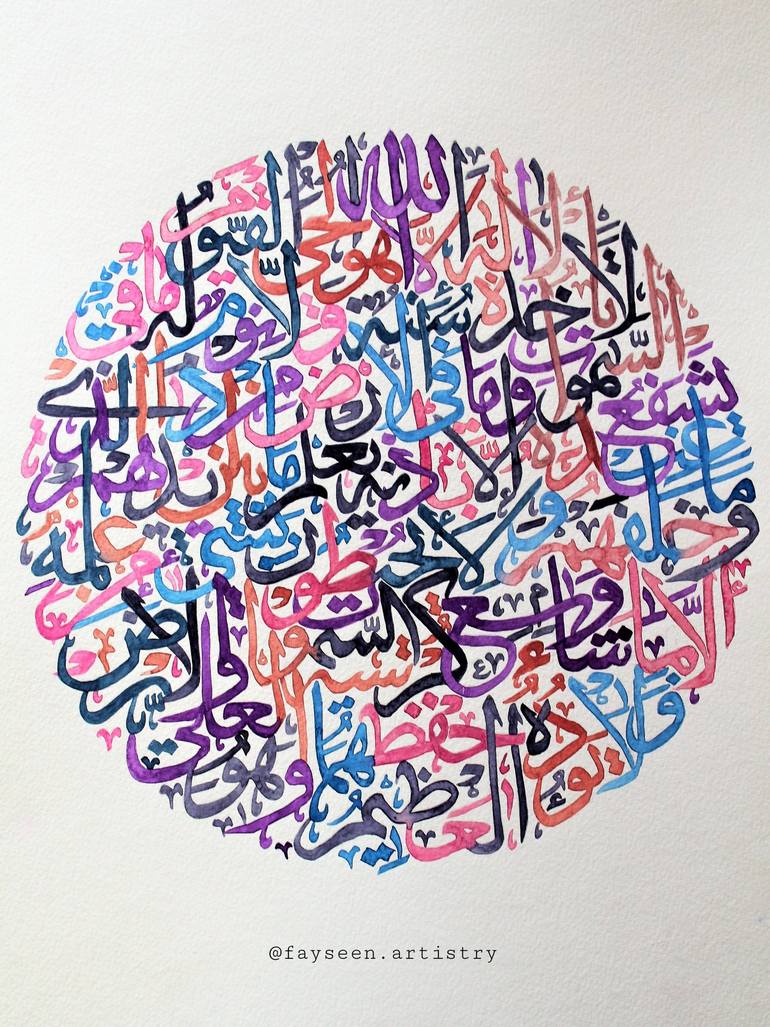 الله لا إله إلا هو الحي القيوم
لا تأخذه سنة ولا نوم له ما في
السموات وما في الأرض من ذا الذي
يشفع عنده إلا بإذنه يعلم ما بين أيديهم
وما خلفهم ولا يحيطون بشيء من علمه
إلا بما شاء وسع كرسيه السموات والأرض
ولا يؤوده حفظهما وهو العلي
العظيم
@fayseen.artistry